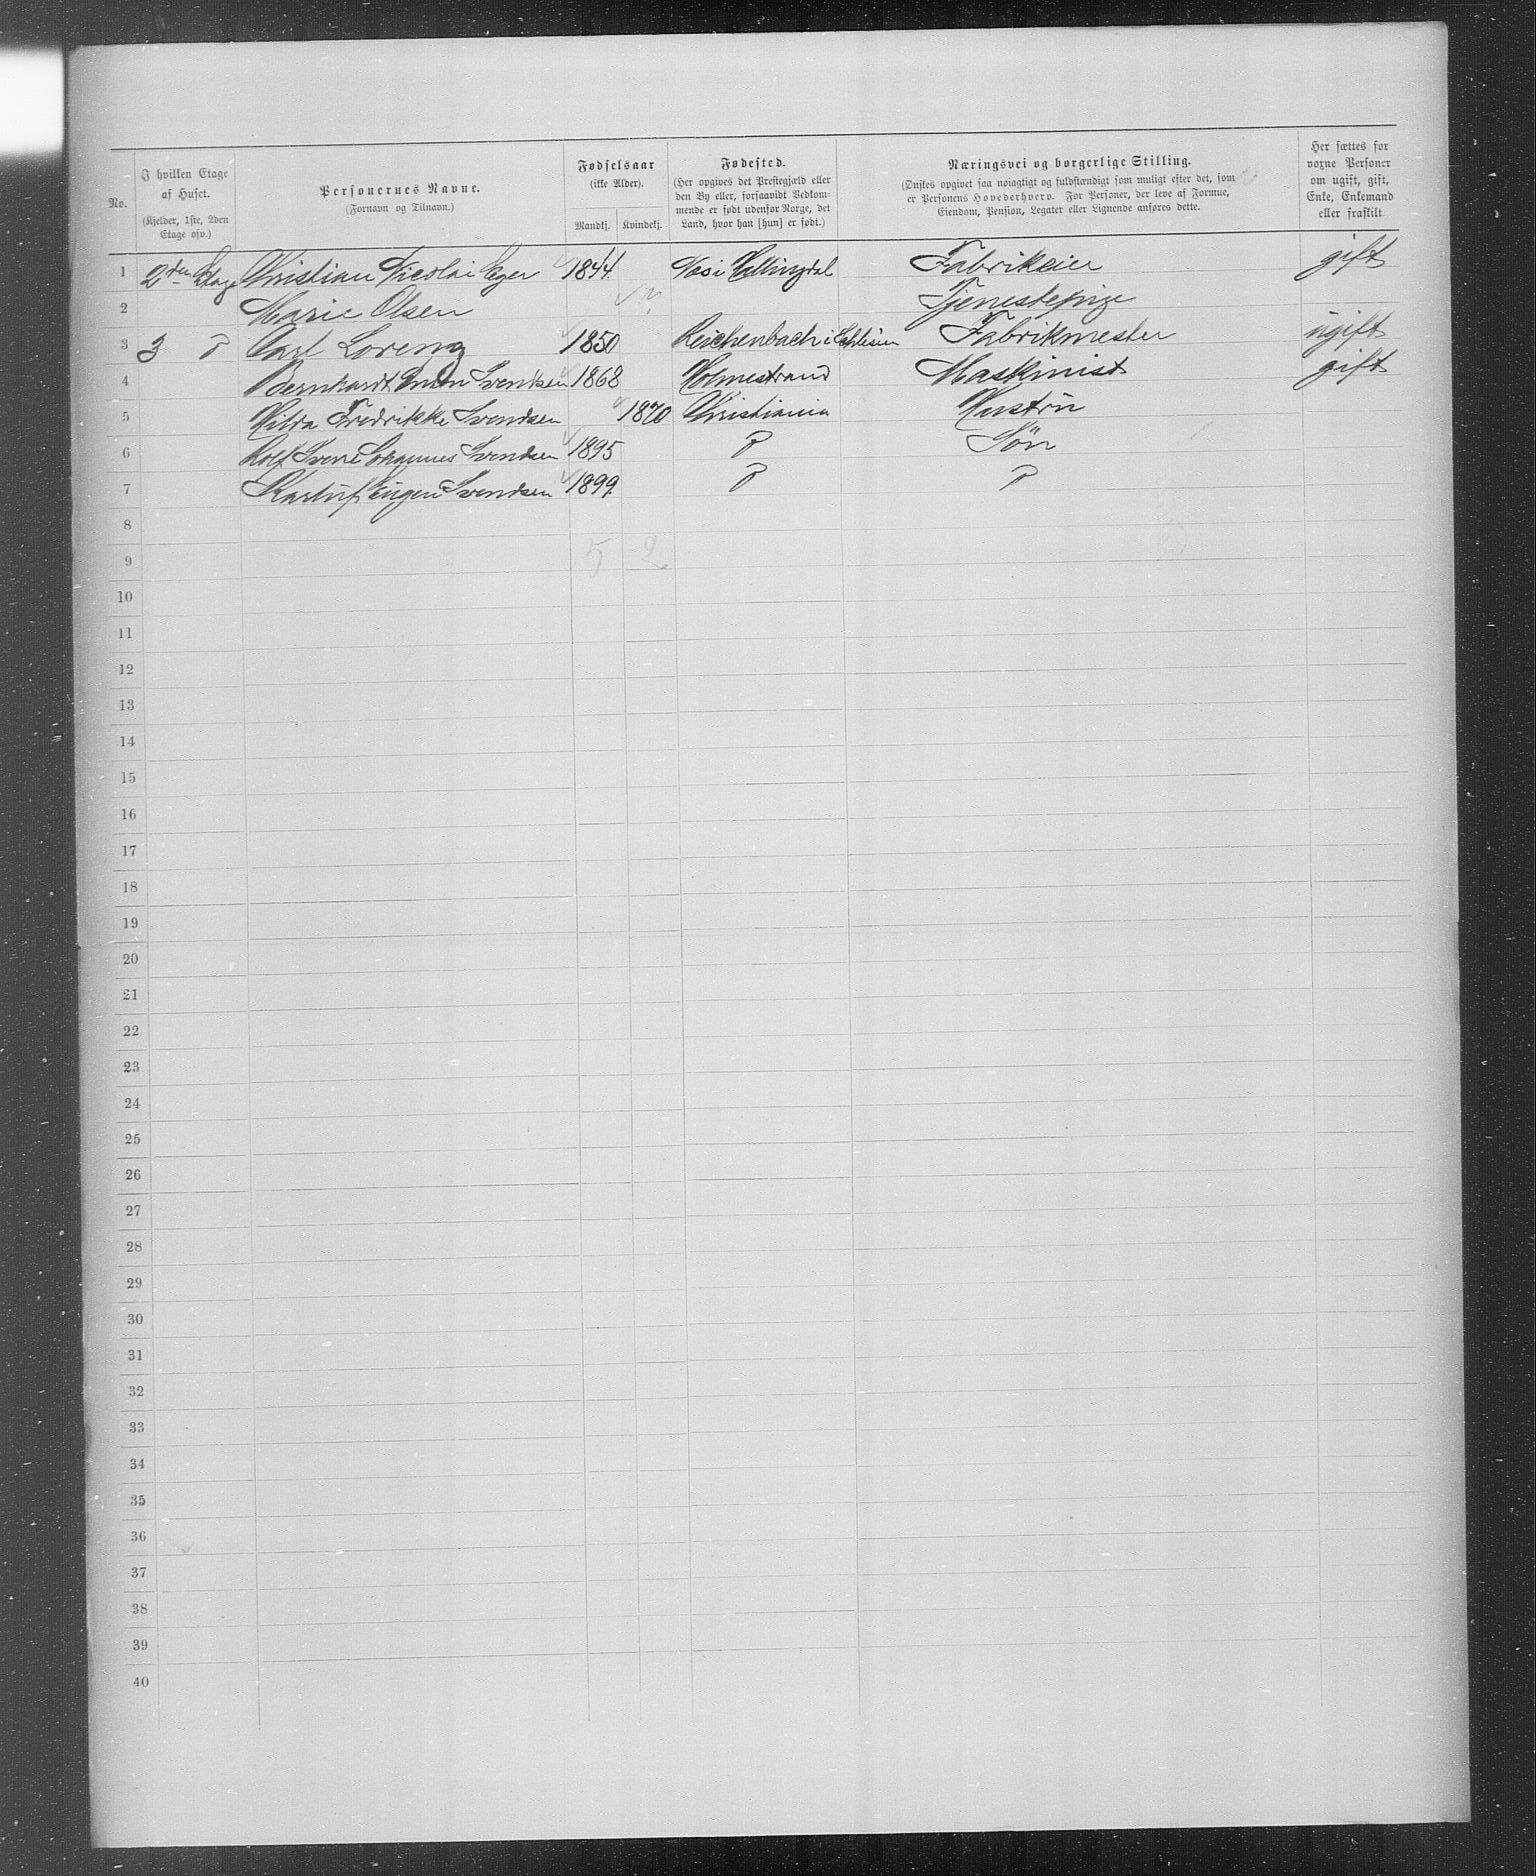 No.
I hvilken Etage af Huset.
(Kjelder, 1ste, 2den Etage osv.)
Personernes Navne.
(Fornavn og Tilnavn.)
Fødselsaar
(ikke Alder).
Mandkj. Kvindekj.
Fødested.
(Her opgives det Prestegjæld eller
den By eller, forsaavidt Vedkom-
mende er født udenfor Norge, det
Land, hvor han [hun] er født.)
Næringsvei og borgerlige Stilling.
(Ønskes opgivet saa nøiagtigt og fuldstændigt som muligt efter det, som
er Personens Hovederhverv. For Personer, der leve af Formue,
Eiendom, Pension, Legater eller Lignende anføres dette.
Her sættes for
voxne Personer
om ugift, gift,
Enke, Enkemand
eller fraskilt
1 2den Etage Christian Nicolai Eger 1844 Næs i Hallingdal Fabrikeier gift
2 Marie Olsen ? Tjenestepige
3 3 d Carl Lorenz 1850 Reichenbach i Schlesien Fabrikmester ugift
4 Bernhardt Svendsen 1868 Holmestrand Maskinist gift
5 Hilda Fredrikke Svendsen 1870 Christiania Hustru
6 Rolf Johannes Svendsen 1895 d Søn
7 Eugen Svendsen 1899 d d
8
9 5 2
10
11
12
13
14
15
16
17
18
19
20
21
22
23
24
25
26
27
28
29
30
31
32
33
34
35
36
37
38
39
40